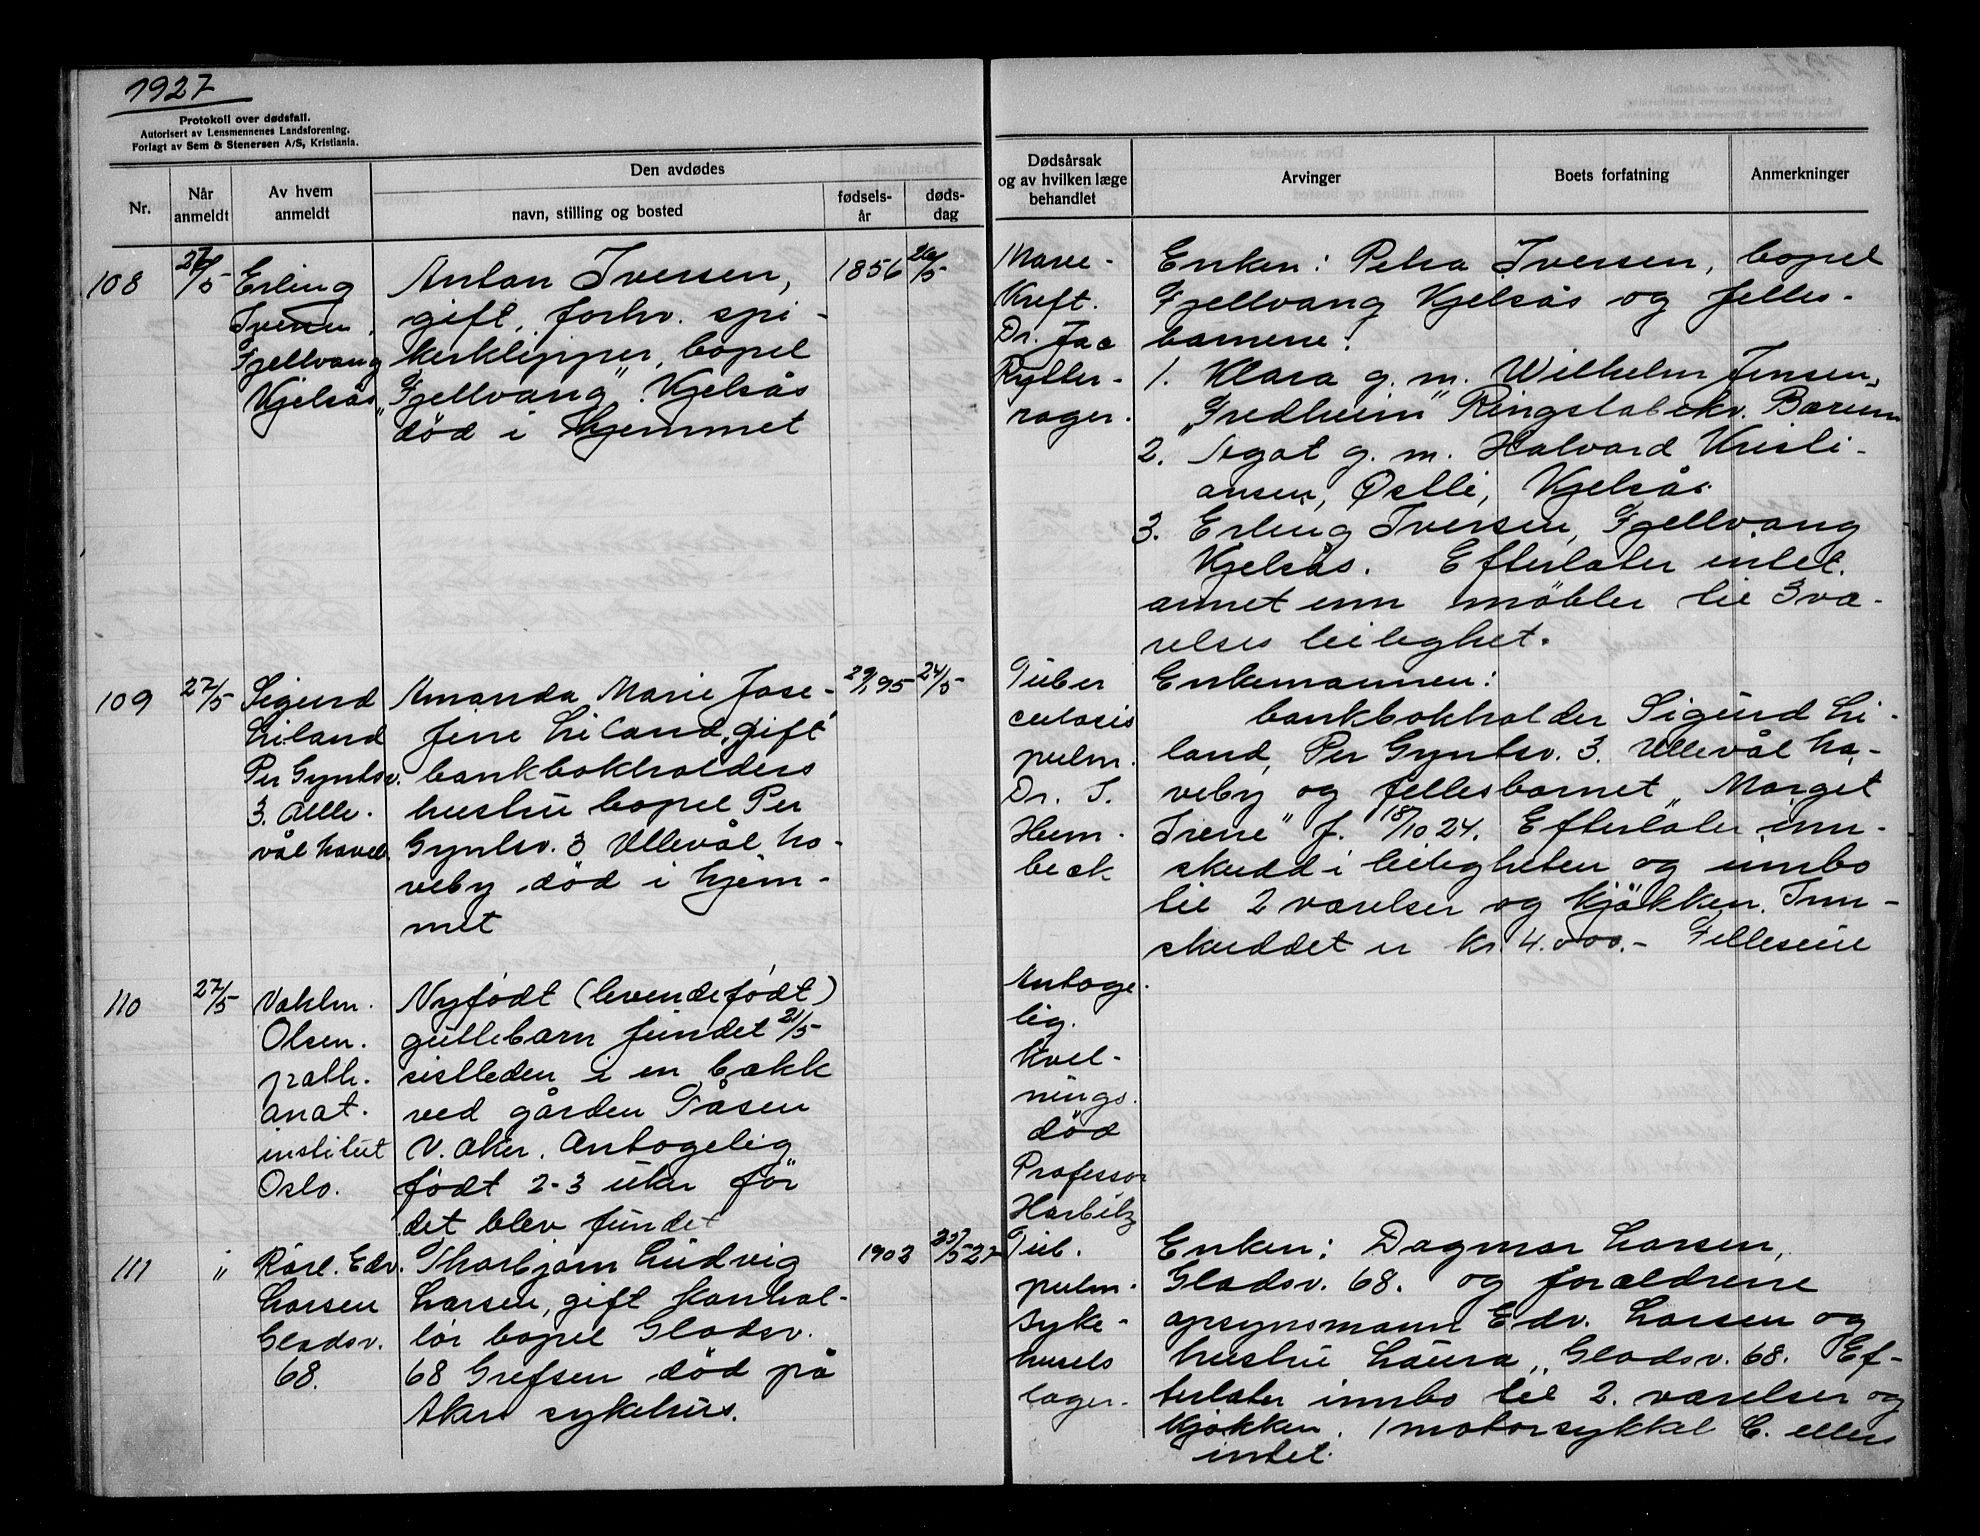 1927
Protokoll over dødsfall.
Autorisert av Lensmennenes Landsforening.
Forlagt av Sem & Stenersen A/S, Kristiania.
Nr.
Når anmeldt
Av hvem anmeldt
Den avdødes
navn, stilling og bosted
fødsels-
år
døds-
dag
Dødsårsak
og av hvilken læge
behandlet
Arvinger
Boets forfatning
Anmerkninger
108
27/5
Erling
Iversen,
Fjellvang
Kjelsås
Anton Iversen,
gift, forhv. spi-
kerklipper, bopel
"Fjellvang" Kjelsås
død i hjemmet
1856
26/5
Mave-
kreft.
Dr. Jac
Rytter-
rager.
Enken: Petra Iversen, bopel
Fjellvang Kjelsås og felles-
barnene:
1. Klara g. m. Wilhelm Jensen,
"Fredheim" Ringstabekv. Bærum
2. Agot g. m. Halvard Kristi-
ansen, Østli, Kjelsås
3. Erling Iversen, Fjellvang
Kjelsås. Efterlater intet
annet enn møbler til 3 væ-
relses leilighet.
109
27/5
Sigurd
Liland
Per Gyntsv.
3. Ulle-
vål haveb.
Amanda Marie Jose-
fine Liland, gift
bankbokholders
hustru bopel Per
Gyntsv. 3 Ullevål ha-
veby død i hjem-
met
29/1 95
24/5
Tuber
culosis
pulm.
Dr. S.
Hem-
beck
Enkemannen:
bankbokholder Sigurd Li-
land, Per Gyntsv. 3. Ullevål ha-
veby og fellesbarnet "Marget
Irene" f. 18/10 24. Efterlater inn-
skudd i leiligheten og innbo
til 2 værelser og kjøkken. Inn-
skuddet er kr. 4.000.- Felleseie
110
27/5
Vaktm.
Olsen.
path.
anat.
institut
Oslo.
Nyfødt (levendefødt)
guttebarn fundet 21/5
sistleden i en bekk
ved gården Tåsen
V. Aker. Antagelig
født 2-3 uker før
det blev fundet
Antage-
lig.
kvel-
nings.
død
Professor
Harbitz
111
"
Karl. Edv.
Larsen
Gladsv.
68.
Thorbjørn Ludvig
Larsen, gift kontor-
lør bopel Gladsv.
68 Grefsen død på
Aker sykehus.
1903
/5 27
Tub.
pulm.
Syke-
husets
læger.
Enken: Dagmar Larsen,
Gladsv. 68. og forældrene
opsynsmann Edv. Larsen og
hustru Laura, Gladsv. 68. Ef-
terlater innbo til 2. værelser og
kjøkken. 1 motorsykkel E. ellers
intet.